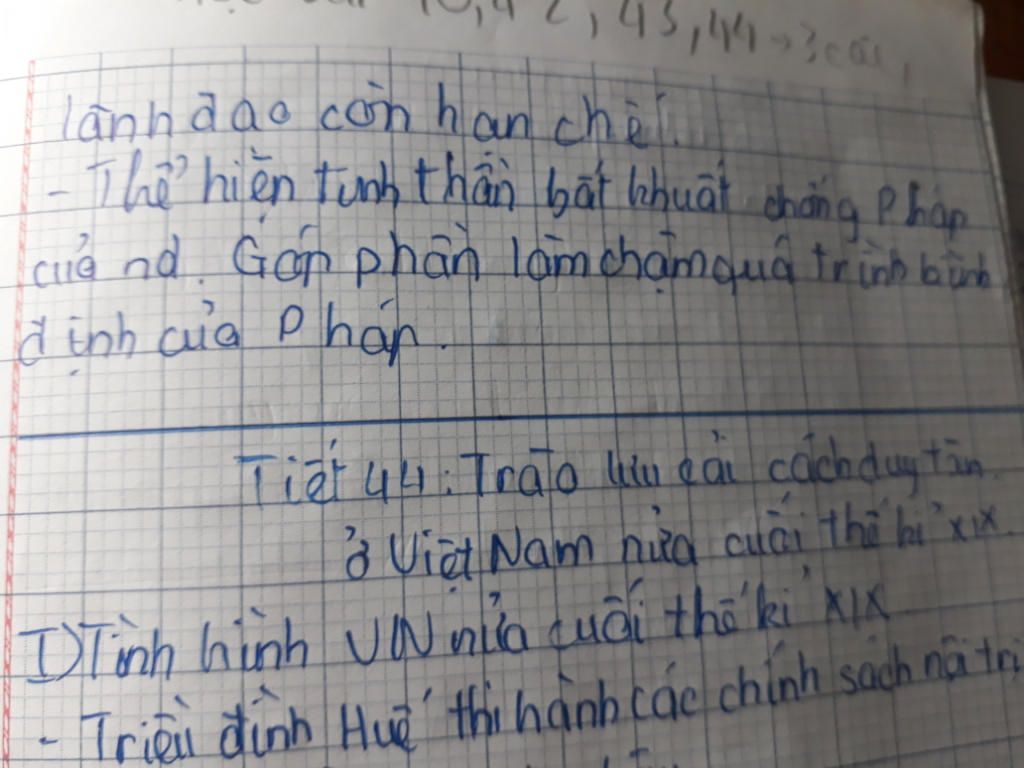 10, 42, 43, 44 → 3 cái,
lãnh đạo còn hạn chế.
- Thể hiện tinh thần bất khuất chống Pháp
của nd. Góp phần làm chậm quá trình bình
định của Pháp.
Tiết 44: Trào lưu cải cách duy tân
ở Việt Nam nửa cuối thế kỉ XIX.
I) Tình hình VN nửa cuối thế kỉ XIX
- Triều đình Huế thi hành các chính sách nội trị